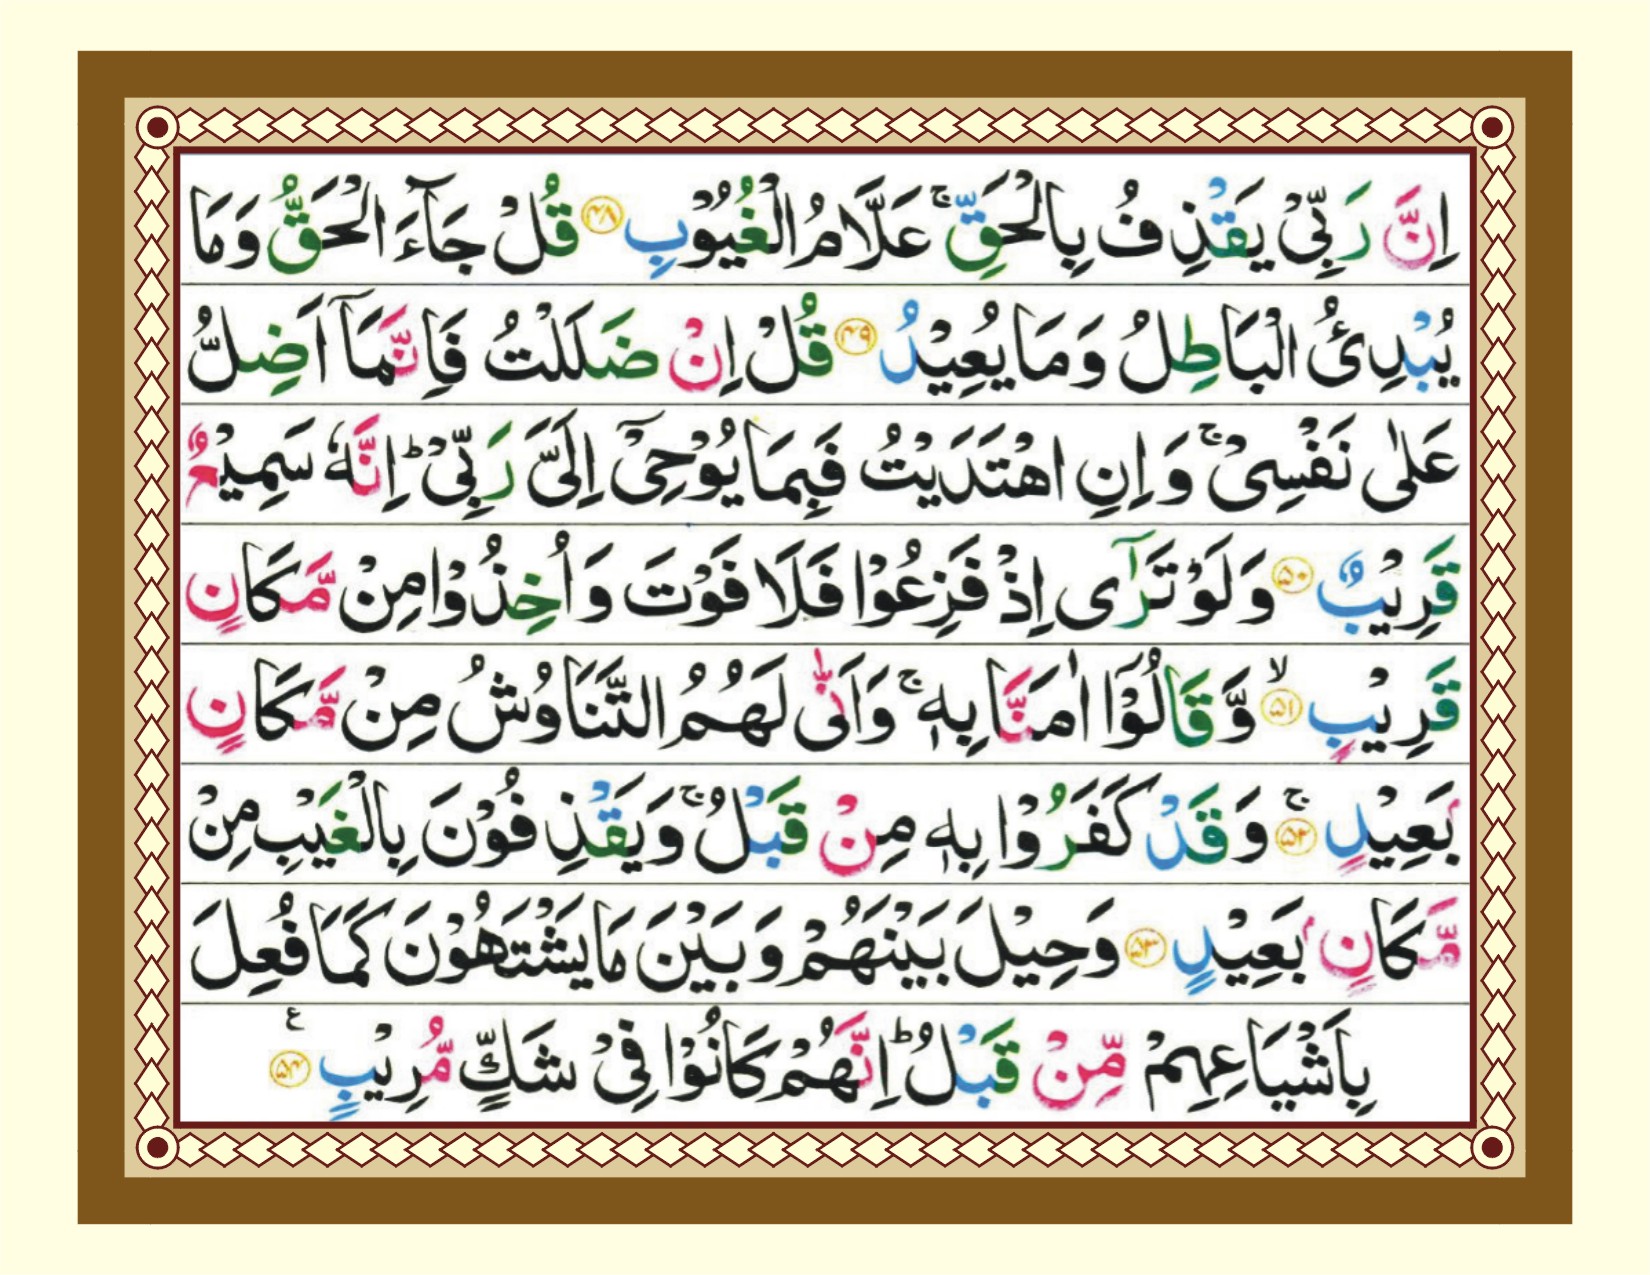 اِنَّ رَبِّیْ یَقْذِفُ بِالْحَقِّ ۚ عَلَّامُ الْغُیُوْبِ ﴿۴۸﴾ قُلْ جَآءَ الْحَقُّ وَمَا
یُبْدِئُ الْبَاطِلُ وَمَا یُعِیْدُ ﴿۴۹﴾ قُلْ اِنْ ضَلَلْتُ فَاِنَّمَآ اَضِلُّ
عَلٰی نَفْسِیْ ۚ وَاِنِ اهْتَدَیْتُ فَبِمَا یُوْحِیْٓ اِلَیَّ رَبِّیْ ؕ اِنَّهٗ سَمِیْعٌ
قَرِیْبٌ ﴿۵۰﴾ وَلَوْ تَرٰۤی اِذْ فَزِعُوْا فَلَا فَوْتَ وَاُخِذُوْا مِنْ مَّكَانٍ
قَرِیْبٍ ﴿۵۱﴾ ۙ وَّقَالُوْۤا اٰمَنَّا بِهٖ ۚ وَاَنّٰی لَهُمُ التَّنَاوُشُ مِنْ مَّكَانٍ
بَعِیْدٍ ﴿۵۲﴾ ۚ وَقَدْ كَفَرُوْا بِهٖ مِنْ قَبْلُ ۚ وَیَقْذِفُوْنَ بِالْغَیْبِ مِنْ
مَّكَانٍۭ بَعِیْدٍ ﴿۵۳﴾ وَحِیْلَ بَیْنَهُمْ وَبَیْنَ مَا یَشْتَهُوْنَ كَمَا فُعِلَ
بِاَشْیَاعِهِمْ مِّنْ قَبْلُ ؕ اِنَّهُمْ كَانُوْا فِیْ شَكٍّ مُّرِیْبٍ ﴿۵۴﴾ ع